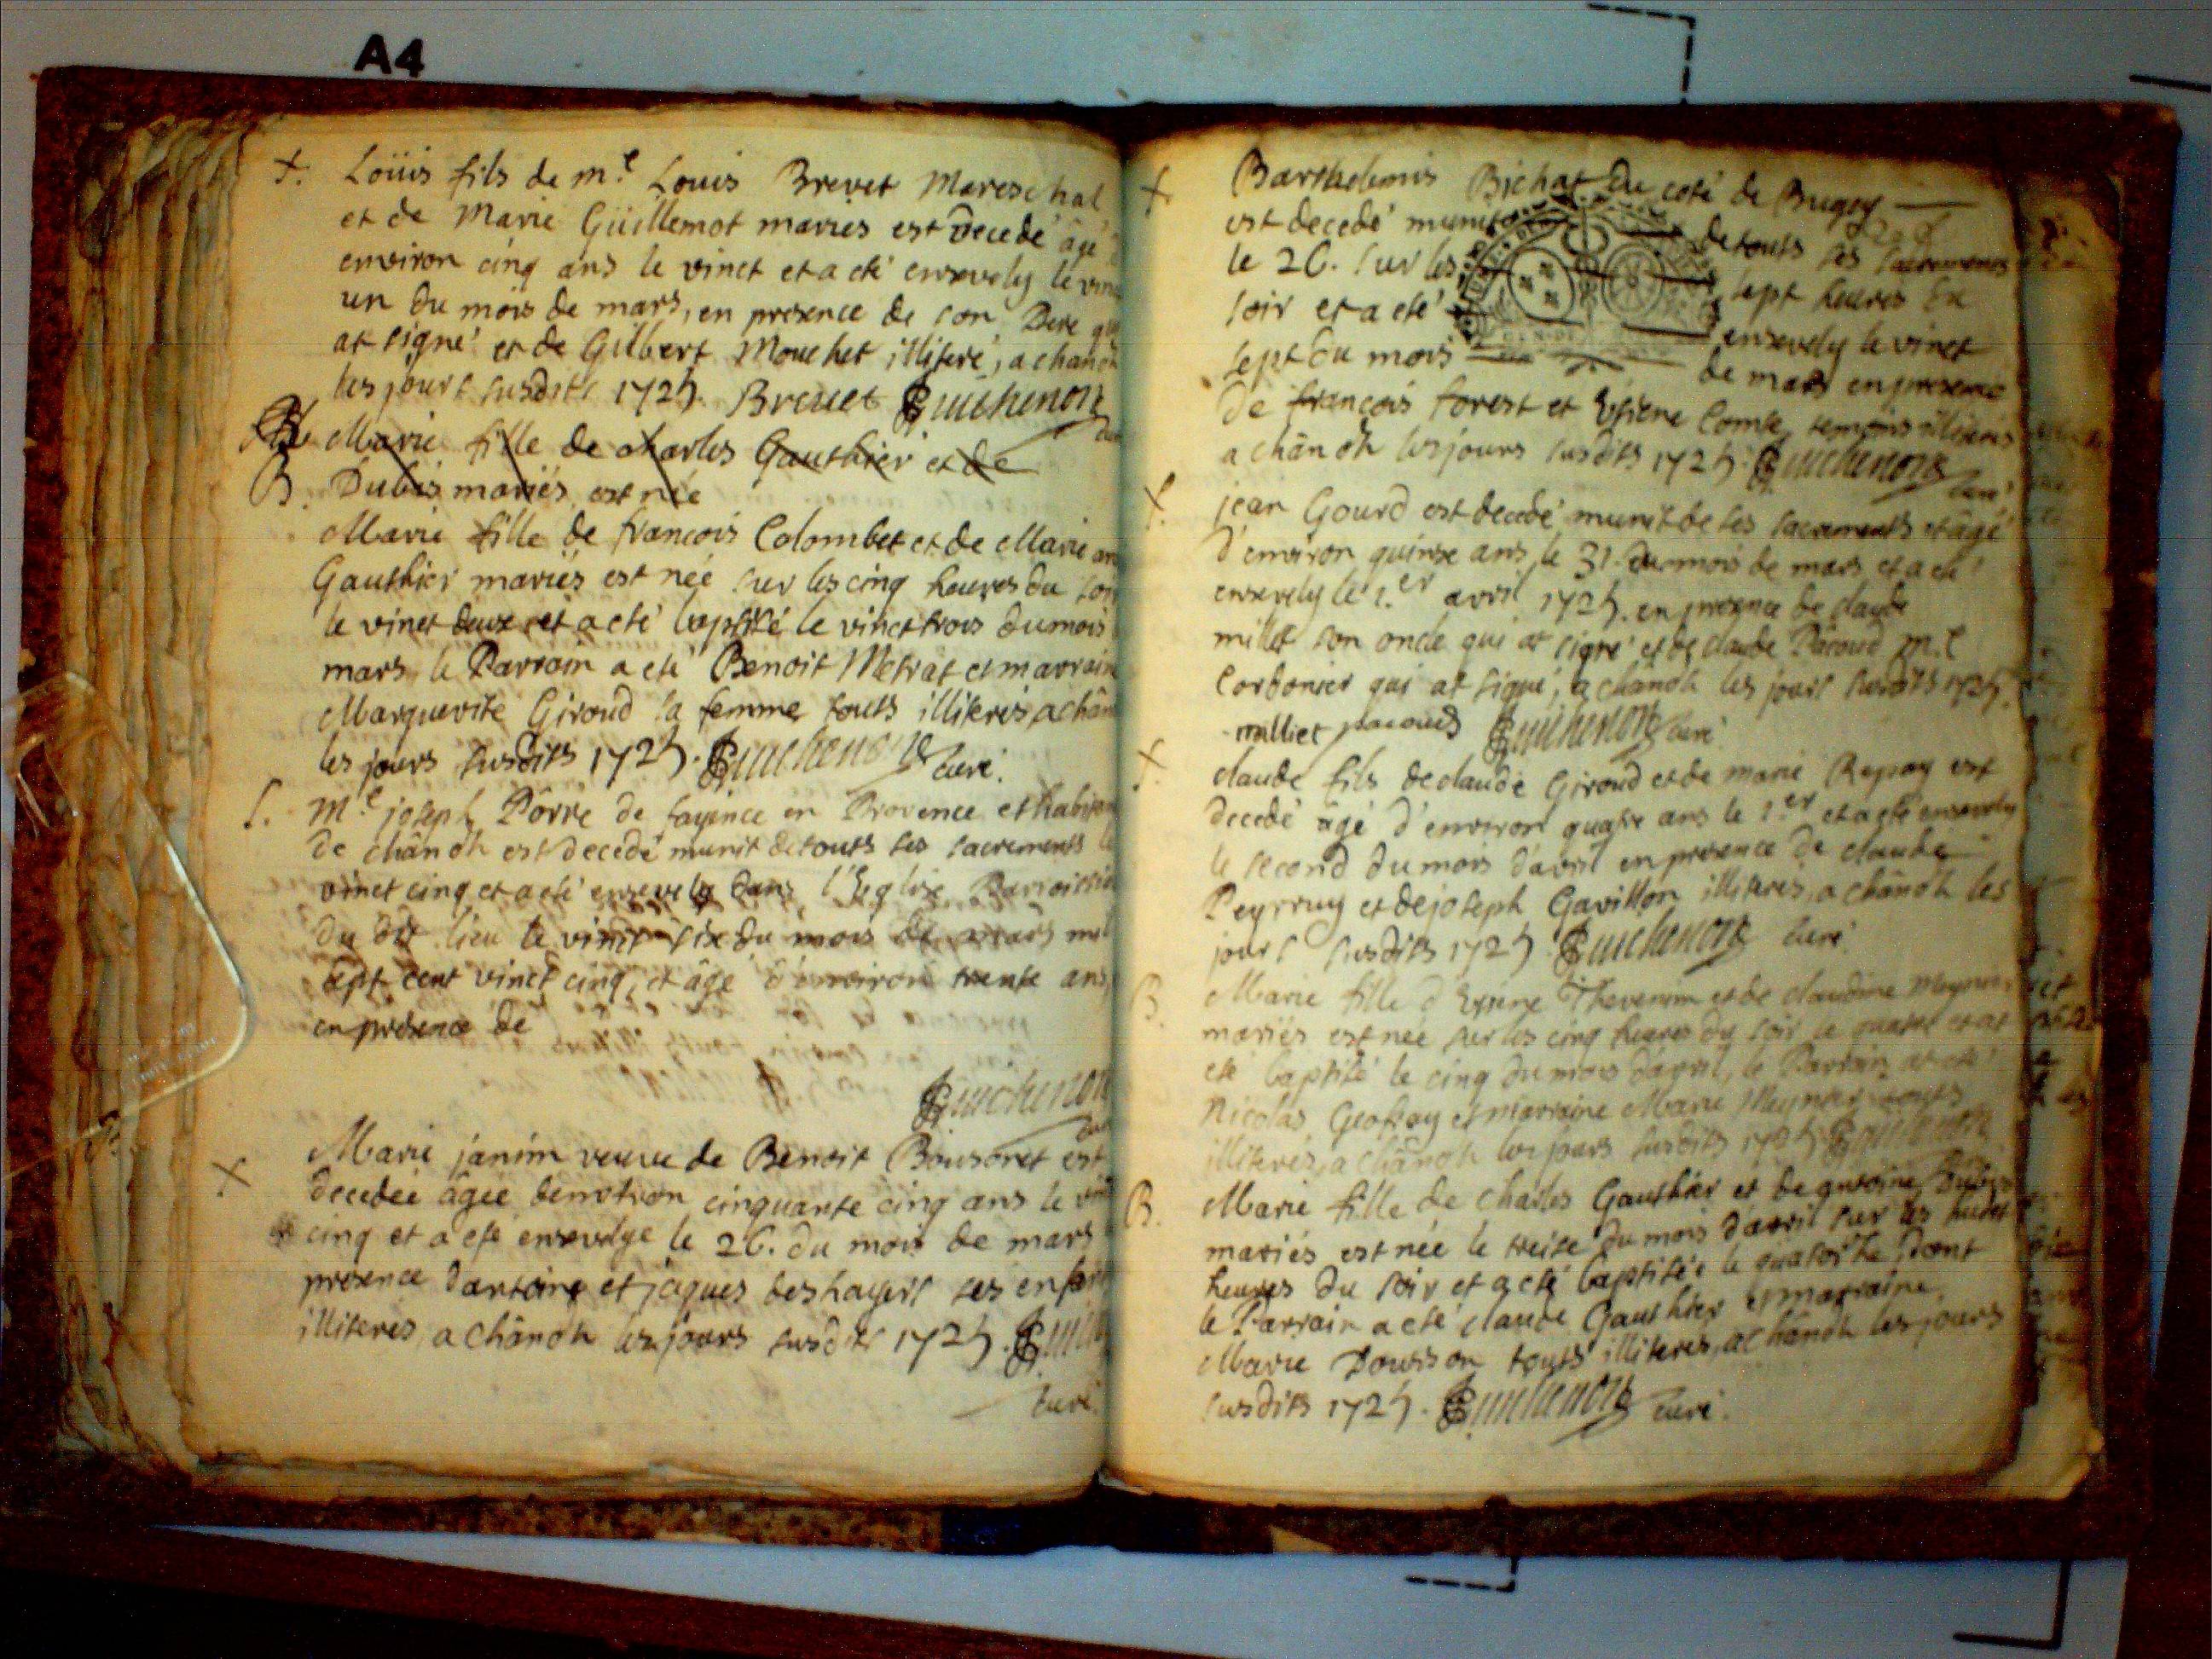 A4
+. Loüis fils de m.e Louis Brevet Mareschal
et de Marie Güillemot mariés est decedé âgé
environ cinq ans le vinct et a eté ensevely le
un du mois de mars, en presence de son Pere
at signé et de Gilbert Mouchet illiteré, a
les jours susdits 1725. Brevet Guichenon
Marie fille de charles Gauthier et de
B. Dubis mariés est née
Marie fille de francois Colombet et de Marie
Gauthier mariés est née sur les cinq heures du
le vinct deux et a eté baptisé le vinct trois du mois
mars, le Parrain a eté Benoit Metrat et marraine
Marguerite Giroud sa femme touts illiterés a
les jours susdits 1725. Guichenon curé.
S. M.e joseph Pórre de fayence en Provence et
de chânoh est decedé munit de touts ses sacrements
vinct cinq et a eté ensevely dans l'Eglise
du dit lieu le vinct six du mois de mars mil
sept cent vinct cinq, et âgé d'environ trente ans,
en présence de
Guichenon
+ Marie janim veuve de Benoit est
decedée âgée cinquante cinq ans le
cinq et a eté ensevelye le 26. du mois de mars
presence d'antoine et jaques ses
illiteres, a chânoh les jours susdits 1725.
curé.
+ Barthelemis Bichat du coté de Bugey
est decedé munit de touts ses sacrements
le 26. sur les sept heures du
soir et a eté ensevely le vinct
sept du mois de mars en presence
de françois forest et Etiene Combe, temoins illiterés
a chânoh les jours susdits 1725. Guichenon
curé
+. jean Gourd est decedé munit de ses sacraments et âgé
d'environ quinse ans, le 31. du mois de mars et a eté
ensevely le 1.er avril 1725. en presence de claude
millet son oncle qui at signé et de claude Pacoud m.e
Cordonier qui at signé, a chânoh les jours susdits 1725.
milliet pacoud Guichenon curé
+. claude fils de claude Giroud et de marie Repay est
decedé âgé d'environ quatre ans le 1.er et a eté ensevely
le second du mois d'avril en presence de claude
Peyrruy et de joseph Gavillon illiterés, a chânoh les
jours susdits 1725. Guichenon curé
B. Marie fille d'Etiene Thevenim et de claudine
mariés est née sur les cinq heures du soir le quatre et at
eté baptisé le cinq du mois d'avril, le Parrain at eté
Nicolas Geofray et marraine Marie Meynier touts
illiterés, a chânoh les jours susdits 1725. Guichenon
B. Marie fille de charles Gauthier et de antoine Dubis
mariés est née le treise du mois d'avril sur les
heures du soir et a eté baptisée le quatorse dont
le Parrain a eté claude Gauthier et marraine
Marie touts illiteres, a chânoh les jours
susdits 1725. Guichenon curé.